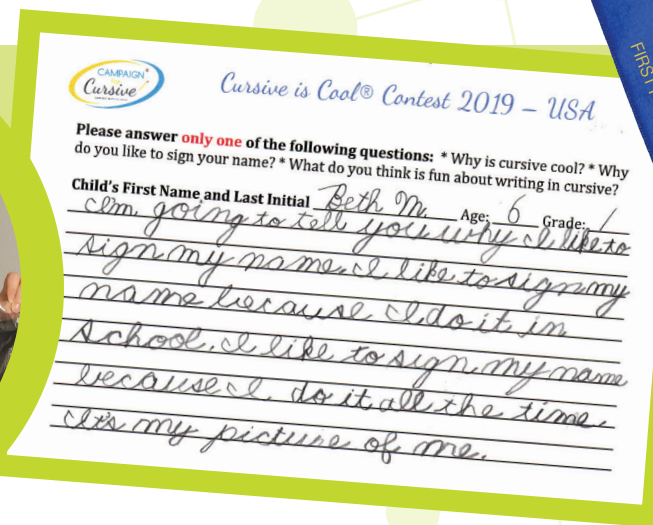 FIRST
CAMPAIGN
FOR
Cursive
Cursive is Cool® Contest 2019 – USA
Please answer only one of the following questions: * Why is cursive cool? * Why
do you like to sign your name? * What do you think is fun about writing in cursive?
Child's First Name and Last Initial Beth M. Age: 6 Grade: 1
I'm going to tell you why I like to
sign my name. I like to sign my
name because I do it in
school. I like to sign my name
because I do it all the time.
It's my picture of me.